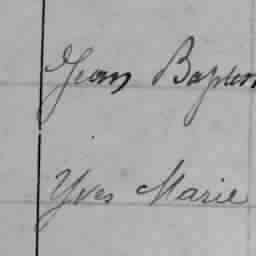 Jean Baptiste
Yves Marie